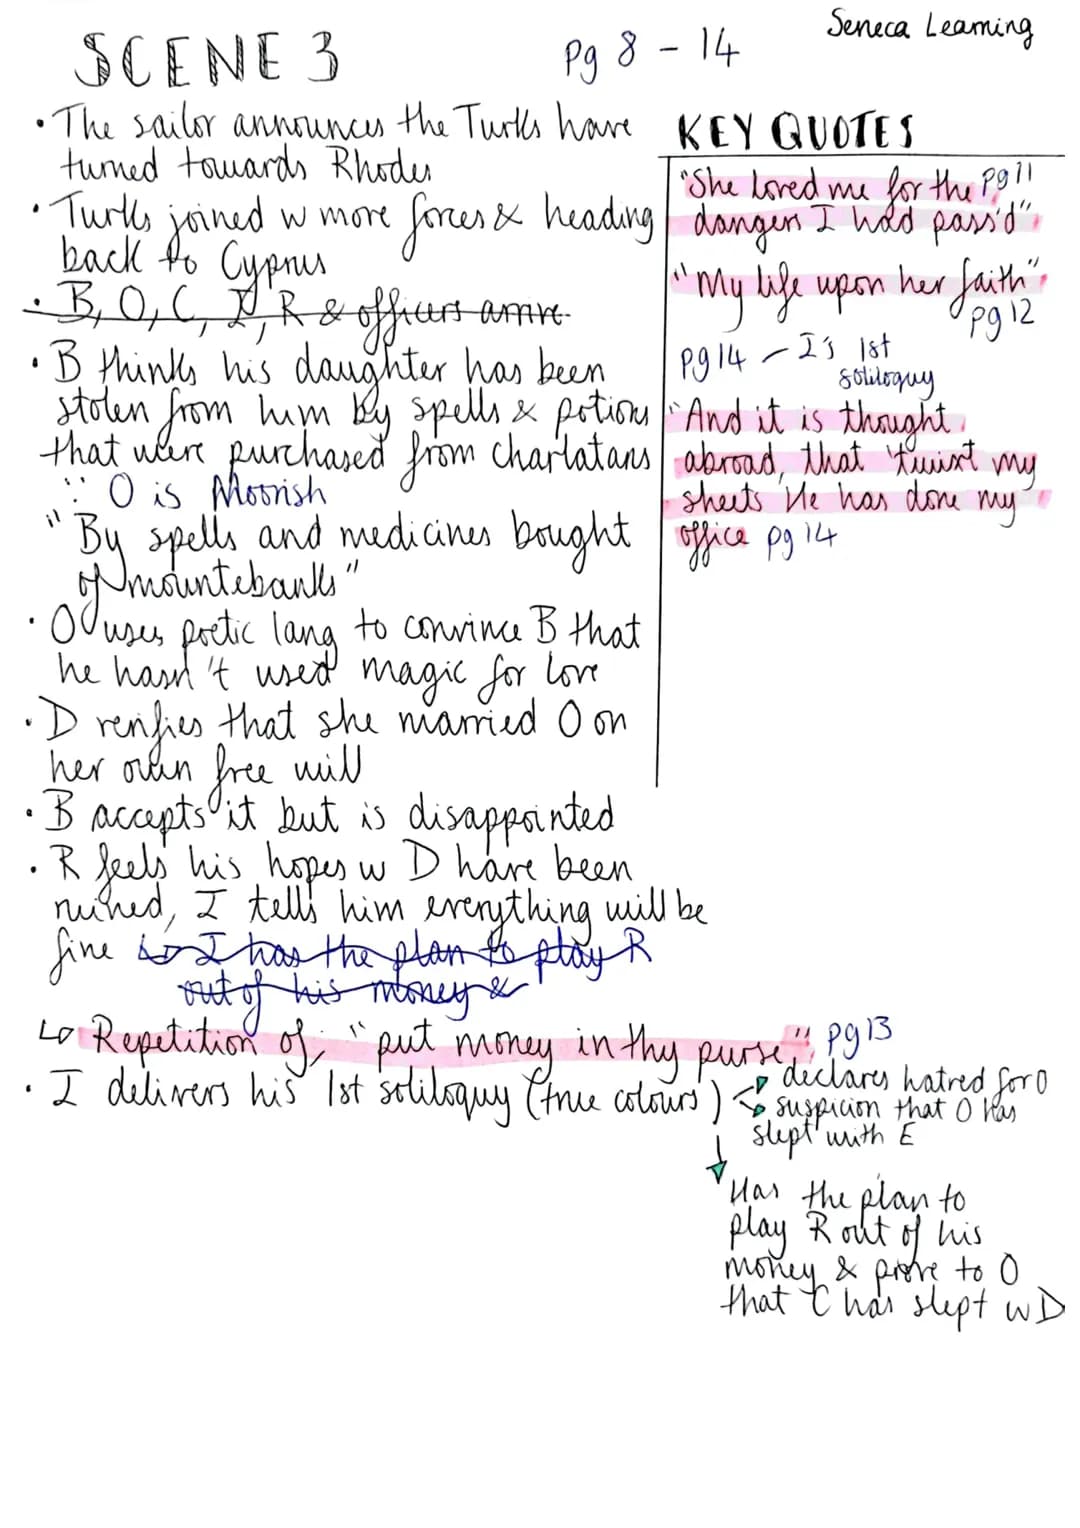 Seneca Learning
SCENE 3
Pg 8 - 14
• The sailor announces the Turks have
turned towards Rhodes
• Turks joined w more forces & heading
back to Cyprus
• B, O, C, I, R & officers arrive.
• B thinks his daughter has been
stolen from him by spells & potions
that were purchased from charlatans
∵ O is Moorish
"By spells and medicines bought
of mountebanks"
• O uses poetic lang to convince B that
he hasn't used magic for love
• D verifies that she married O on
her own free will
• B accepts it but is disappointed
• R feels his hopes w D have been
ruined, I tells him everything will be
fine ↳ I has the plan to play R
out of his money &
↳ Repetition of, "put money in thy purse," pg13
• I delivers his 1st soliloquy (true colours)
declares hatred for O
suspicion that O has
slept with E
Has the plan to
play R out of his
money & prove to O
that C has slept w D
KEY QUOTES
"She loved me for the pg11
dangers I had pass'd"
"My life upon her faith"
pg12
pg14 - I's 1st
soliloquy
"And it is thought
abroad, that 'twixt my
sheets He has done my
office pg 14